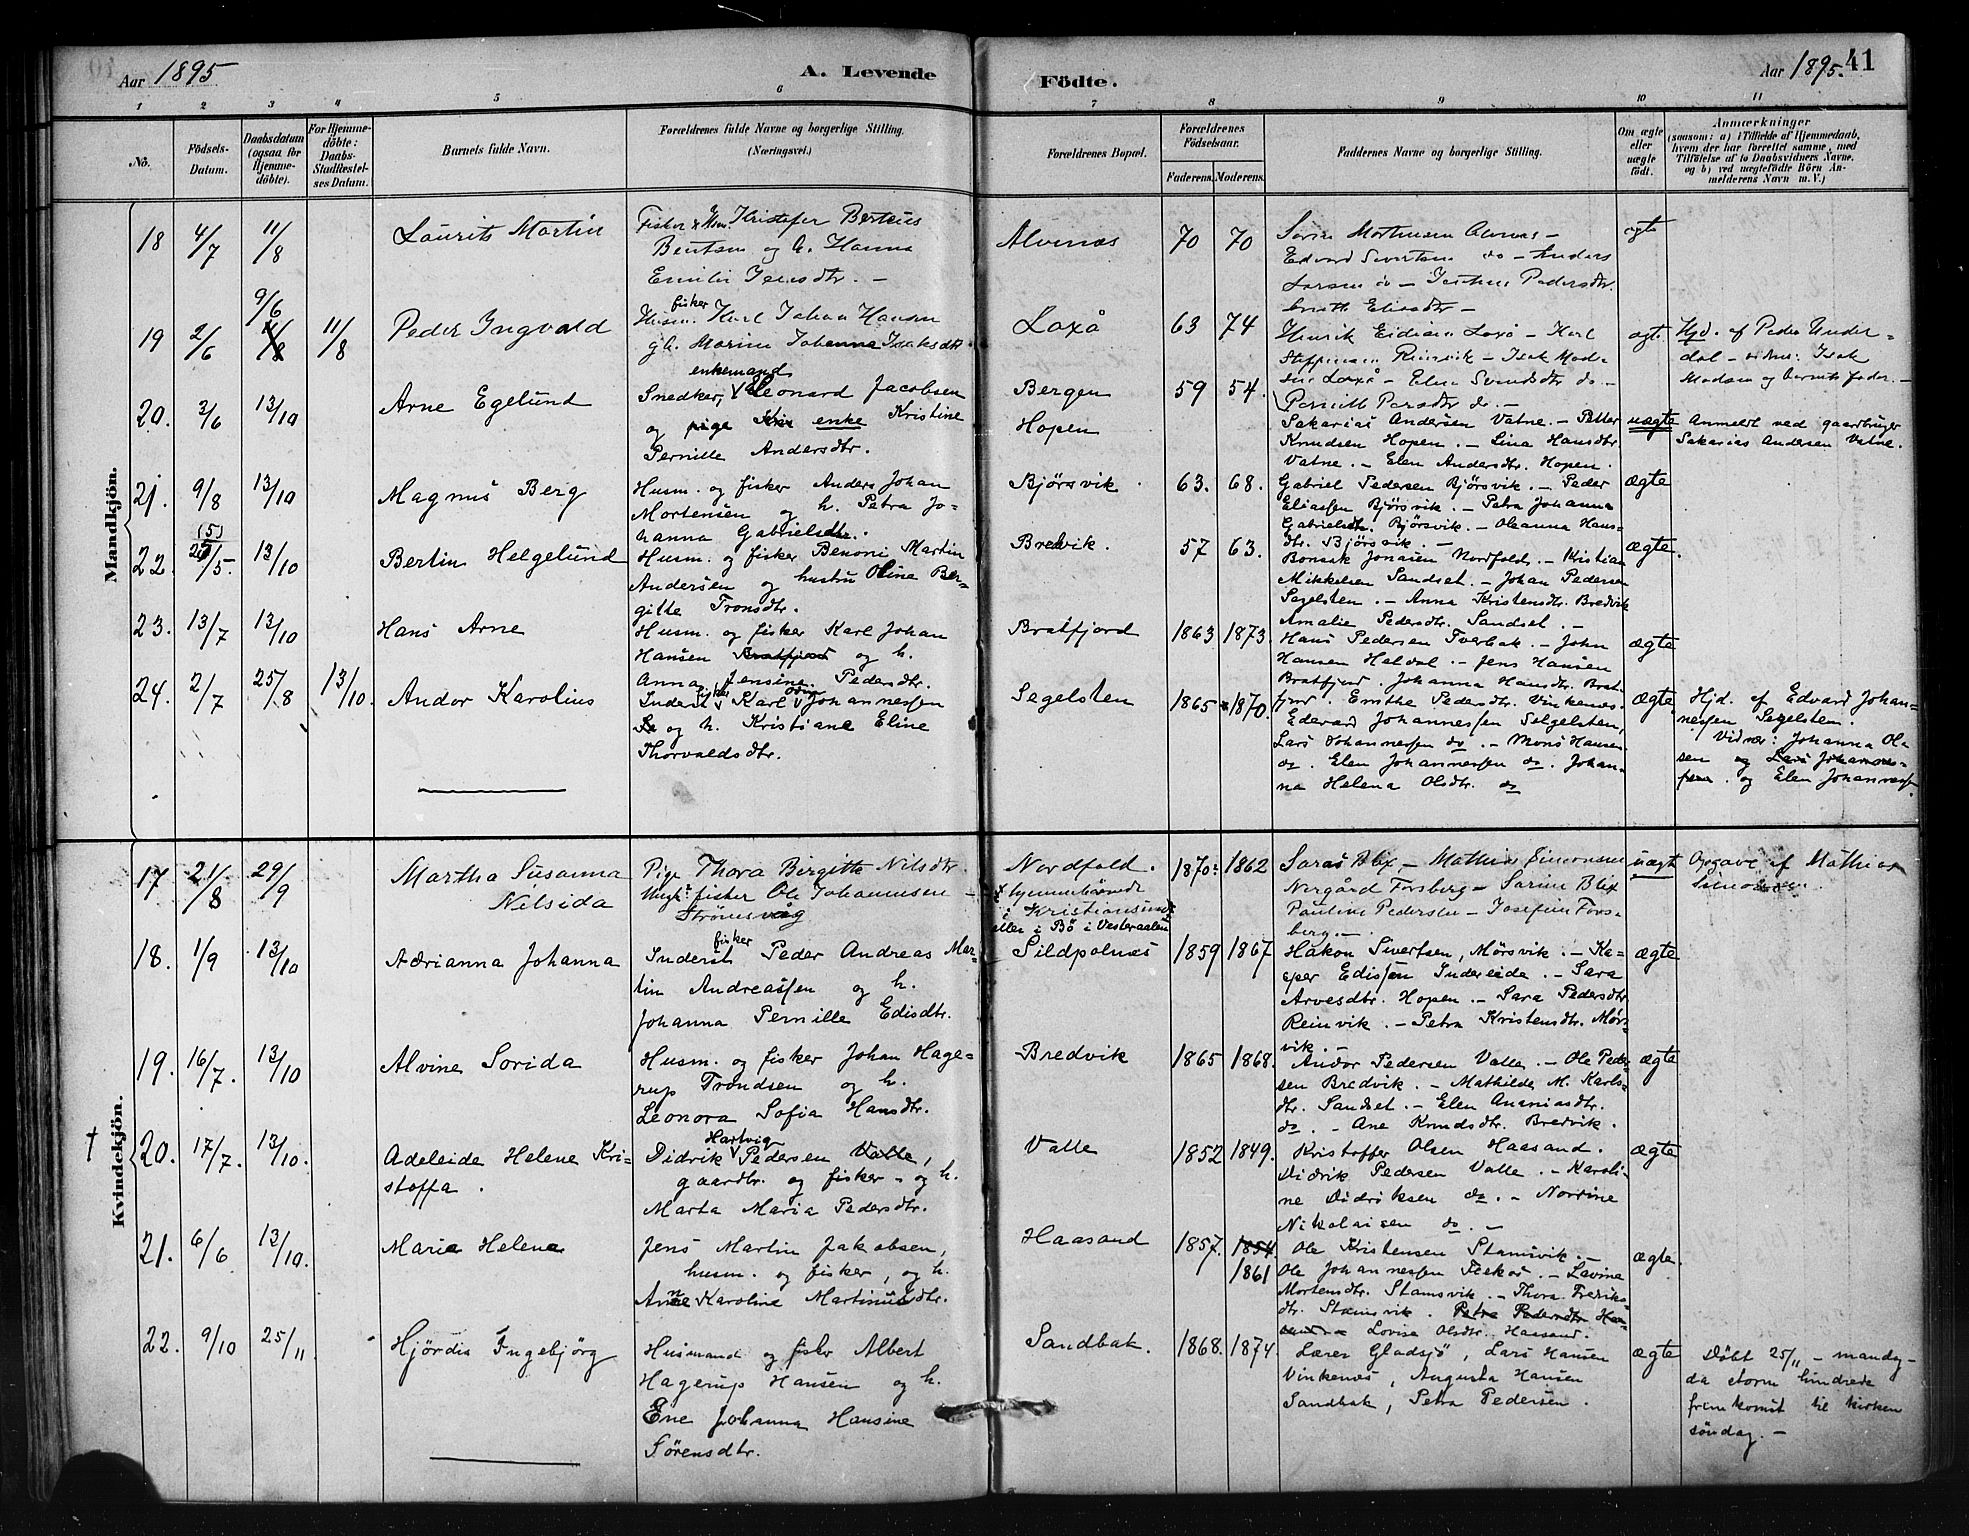 Aar 1895
A. Levende
Födte.
Aar 1895.
41
1 2 3 4 5 6 7 8 9 10 11
No.
Födsels-
Datum.
Daabsdatum
(ogsaa for
Hjemme-
döbte).
For Hjemme-
döbte:
Daabs-
Stadfæstel-
ses Datum.
Barnets fulde Navn.
Forældrenes fulde Navne og borgerlige Stilling.
(Næringsvei.)
Forældrenes Bopæl.
Forældrenes
Födselsaar.
Faderens. Moderens.
Faddernes Navne og borgerlige Stilling.
Om ægte
eller
uægte
födt.
Anmærkninger
(saasom: a) i Tilfælde af Hjemmedaab,
hvem der har forrettet samme, med
Tilföielse af to Daabsvidners Navne,
og b) ved uægtefödte Börn An-
melderens Navn m. V.)
Mandkjön.
18 4/7 11/8
Laurits Martin
Fisker Kristofer Berteus
Bentsen og h. Hanna
Emilie Jensdtr. —
Alvenæs
70 70
Sören Mortensen Alvenæs —
Edvard Sivertsen do — Anders
Larsen do — Pedersdtr.
Elisadtr —
ægte
19 2/6 9/6 11/8
Peder Ingvald
Husm. fisker Karl Johan Hansen
g h. Marine Johanna Isaksdtr
Loxå
63 74
Henrik Loxå — Karl
Steffensen Reinsvik — Isak Mad-
sen Loxå — Elen Svendsdtr do —
Pernille Persdtr do. —
ægt.
Hjd. af Peder Under-
dal — vidner: Isak
Madsen og barnets fader. —
20. 3/6 13/10
Arne Egelund
enkemand
Snedker, Leonard Jacobsen
og pige enke Kristine
Pernille Andersdtr.
Bergen
Hopen
59 54.
Sakarias Andersen Vatne. — Petter
Knudsen Hopen. — Lina Hansdtr.
Vatne. — Elen Andersdtr. Hopen.
uægte
Anmeldt ved gaardbruger
Sakarias Andersen Vatne.
21. 9/8 13/10
Magnus Berg
Husm. og fisker Anders Johan
Mortensen og h. Petra Jo-
hanna Gabrielsdtr.
Bjørsvik.
63. 68.
Gabriel Pedersen Bjørsvik. — Peder
Eliassen Bjørsvik. — Petra Johanna
Gabrielsdtr. Bjørsvik. — Oleanna Hans-
dtr. Bjørsvik. —
ægte
22. (5) /5. 13/10
Bertin Helgelund
Husm. og fisker Benoni Martin
Andersen og hustru Oline Ber-
gitte Tronsdtr.
Bredvik.
57 63.
Bonsak Jonasen Nordfold. — Kristian
Mikkelsen Sandset. — Johan Pedersen
Segelsten. — Anna Kristensdtr. Bredvik
Amalie Pedersdtr. Sandset. —
ægte.
23. 13/7 13/10
Hans Arne
Husm. og fisker Karl Johan
Hansen Bratfjord og h.
Anna Jensine Pedersdtr.
Bratfjord
1863 1873
Hans Pedersen Tverbak. — John
Hansen Heldal. — Jens Hansen
Bratfjord. Johanna Hansdtr. Brat-
fjord. Emthe Pedersdtr. Vinkenæs.
ægte
24. 2/7 25/8 13/10.
Andor Karolius
Inderst fisker Karl Odin Johannessen
og h. Kristiane Eline
Thorvaldsdtr.
Segelsten
1865 1870.
Edevard Johannessen Selgelsten,
Lars Johannessen do. — Mons Hansen
do. Elen Johannessen do. Johan-
na Helena Olsdtr. do
ægte
Hjd. af Edvard Johan-
nessen Segelsten.
Vidner: Johanna Ol-
sen og Lars Johannes-
sen. og Elen Johanness.
Kvindekjön.
17 21/8 29/9
Martha Susanna
Nilsida
Pige Thora Birgitte Nilsdtr.
Ungk. fisker Ole Johannesen —
Strömsvåg
Nordfold.
hjemmehörende
i Kristiansund
eller i Bö i Vesteraalen
1870. 1862
Saras Blix — Mathias Simonsen
Nergård Forsberg — Sarine Blix
Pauline Pedersen — Josefine Fors-
berg. —
uægt
Opgave af Mathias
Simonsen.
18. 1/9 13/10
Adrianna Johanna
Inderst fisker Peder Andreas Mar-
tin Andreassen og h.
Johanna Pernille Edisdtr.
Sildpolnes
1859 1867
Hakon Sivertsen, Mørsvik. — Ka-
sper Edissen Indreeide. — Sara
Arvesdtr. Hopen. — Sara Pedersdtr
Reinvik. — Petra Kristensdtr. Mørs-
vik. —
ægte
19. 16/7. 13/10
Alvine Sorida
Husm. og fisker Johan Hage-
rup Trondsen og h.
Leonora Sofia Hansdtr.
Bredvik
1865 1868.
Andor Pedersen Valle. — Ole Peder-
sen Bredvik. — Mathilde M. Karls-
dtr. Sandset. — Elen Ananiasdtr.
do. — Ane Knudsdtr. Bredvik.
ægte
† 20. 17/7. 13/10.
Adeleide Helene Kri-
stoffa.
Didrik Hartvig Pedersen Valle,
gaardbr. og fisker — og h.
Marta Maria Pedersdtr.
Valle
1852 1849.
Kristoffer Olsen Haasand.
Didrik Pedersen Valle. — Karoli-
ne Didriksen do. — Nordine
Nikolaisen do. —
ægte
21. 6/6 13/10.
Marie Helene
Jens Martin Jakobsen,
husm. og fisker, og h.
Anne Karoline Martinusdtr.
Haasand
1857. 1854.
1861
Ole Kristensen Stamsvik. —
Ole Johannessen — Lavine
Mortensdtr. Stamsvik. — Thora Fredriks-
dtr. Stamsvik. Petra Pedersdtr Haa-
sand — Lovise Olsdtr. Haasand.
ægte.
22. 9/10 25/11
Hjördis Ingebjörg
Husmand og fisker Albert
Hagerup Hansen og h.
Ene Johanna Hansine
Sörensdtr.
Sandbak.
1868. 1874.
Lærer Gladsjö, Lars Hansen
Vinkenes, Augusta Hansen
Sandbak, Petra Pedersen.
ægte
Döbt 25/11 — mandag —
da storm hindrede
fremkomst til kirken
söndag. —